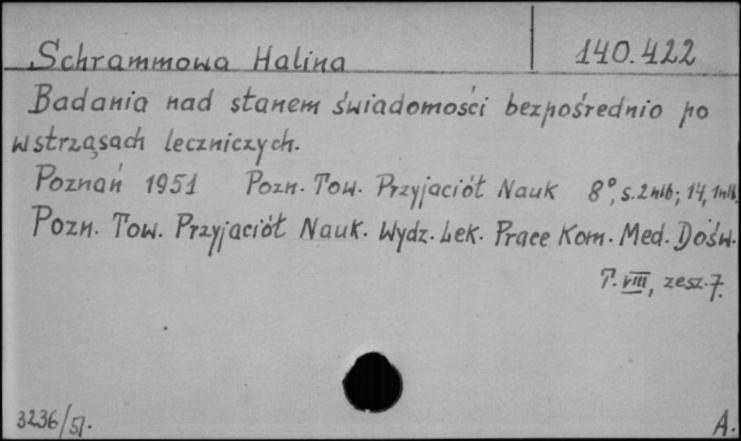 Schrammowa Halina 140.422
Badania nad stanem świadomości bezpośrednio po
wstrząsach leczniczych.
Poznań 1951 Pozn. Tow. Przyjaciół Nauk 8°, s. 2 nlb; 14, 1 nlb.
Pozn. Tow. Przyjaciół Nauk. Wydz. Lek. Prace Kom. Med. Dośw.
T. VIII, zesz. 7.
3236/51. A.